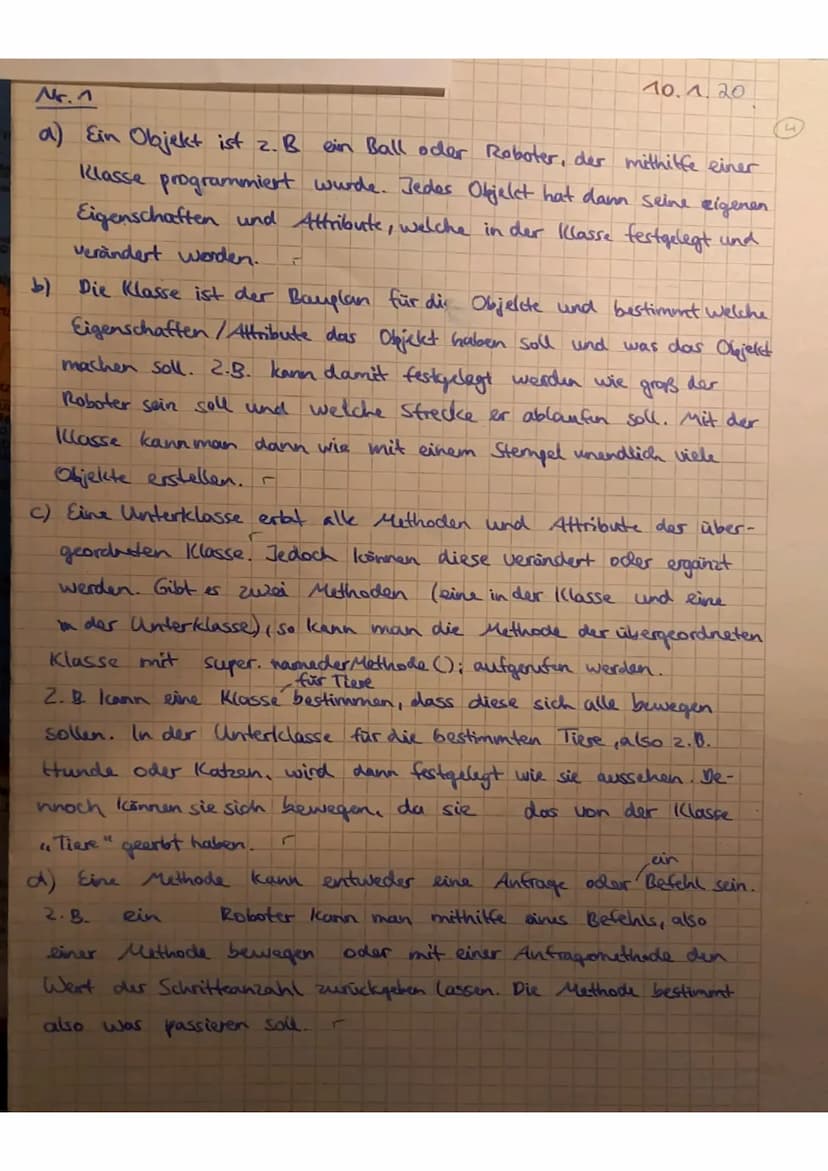 Nr. 1
10.1.20
4
a) Ein Objekt ist z.B ein Ball oder Roboter, der mithilfe einer
Klasse programmiert wurde. Jedes Objekt hat dann seine eigenen
Eigenschaften und Attribute, welche in der Klasse festgelegt und
verändert werden. r
b) Die Klasse ist der Bauplan für die Objekte und bestimmt welche
Eigenschaften / Attribute das Objekt haben soll und was das Objekt
machen soll. Z.B. kann damit festgelegt werden wie groß der
Roboter sein soll und welche Strecke er ablaufen soll. Mit der
Klasse kann man dann wie mit einem Stempel unendlich viele
Objekte erstellen. r
c) Eine Unterklasse erbt alle Methoden und Attribute der über-
geordneten Klasse. r Jedoch können diese verändert oder ergänzt
werden. Gibt es zwei Methoden (eine in der Klasse und eine
in der Unterklasse), so kann man die Methode der übergeordneten
Klasse mit super.namederMethode(); aufgerufen werden.
für Tiere
Z.B kann eine Klasse bestimmen, dass diese sich alle bewegen
sollen. In der Unterklasse für die bestimmten Tiere, also z.B.
Hunde oder Katzen, wird dann festgelegt wie sie aussehen. De-
nnoch können sie sich bewegen, da sie das von der Klasse
„Tiere" geerbt haben. r
ein
d) Eine Methode kann entweder eine Anfrage oder Befehl sein.
Z.B. ein Roboter kann man mithilfe eines Befehls, also
einer Methode bewegen oder mit einer Anfragemethode den
Wert der Schritteanzahl zurückgeben lassen. Die Methode bestimmt
also was passieren soll. r